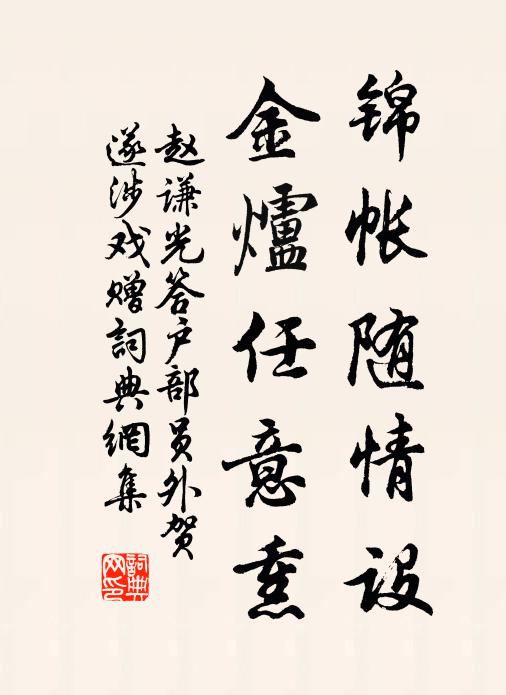 锦帐随情设
金爐任意熏
赵谦光答户部员外贺
遂涉戏赠詞典網集
詞典网印